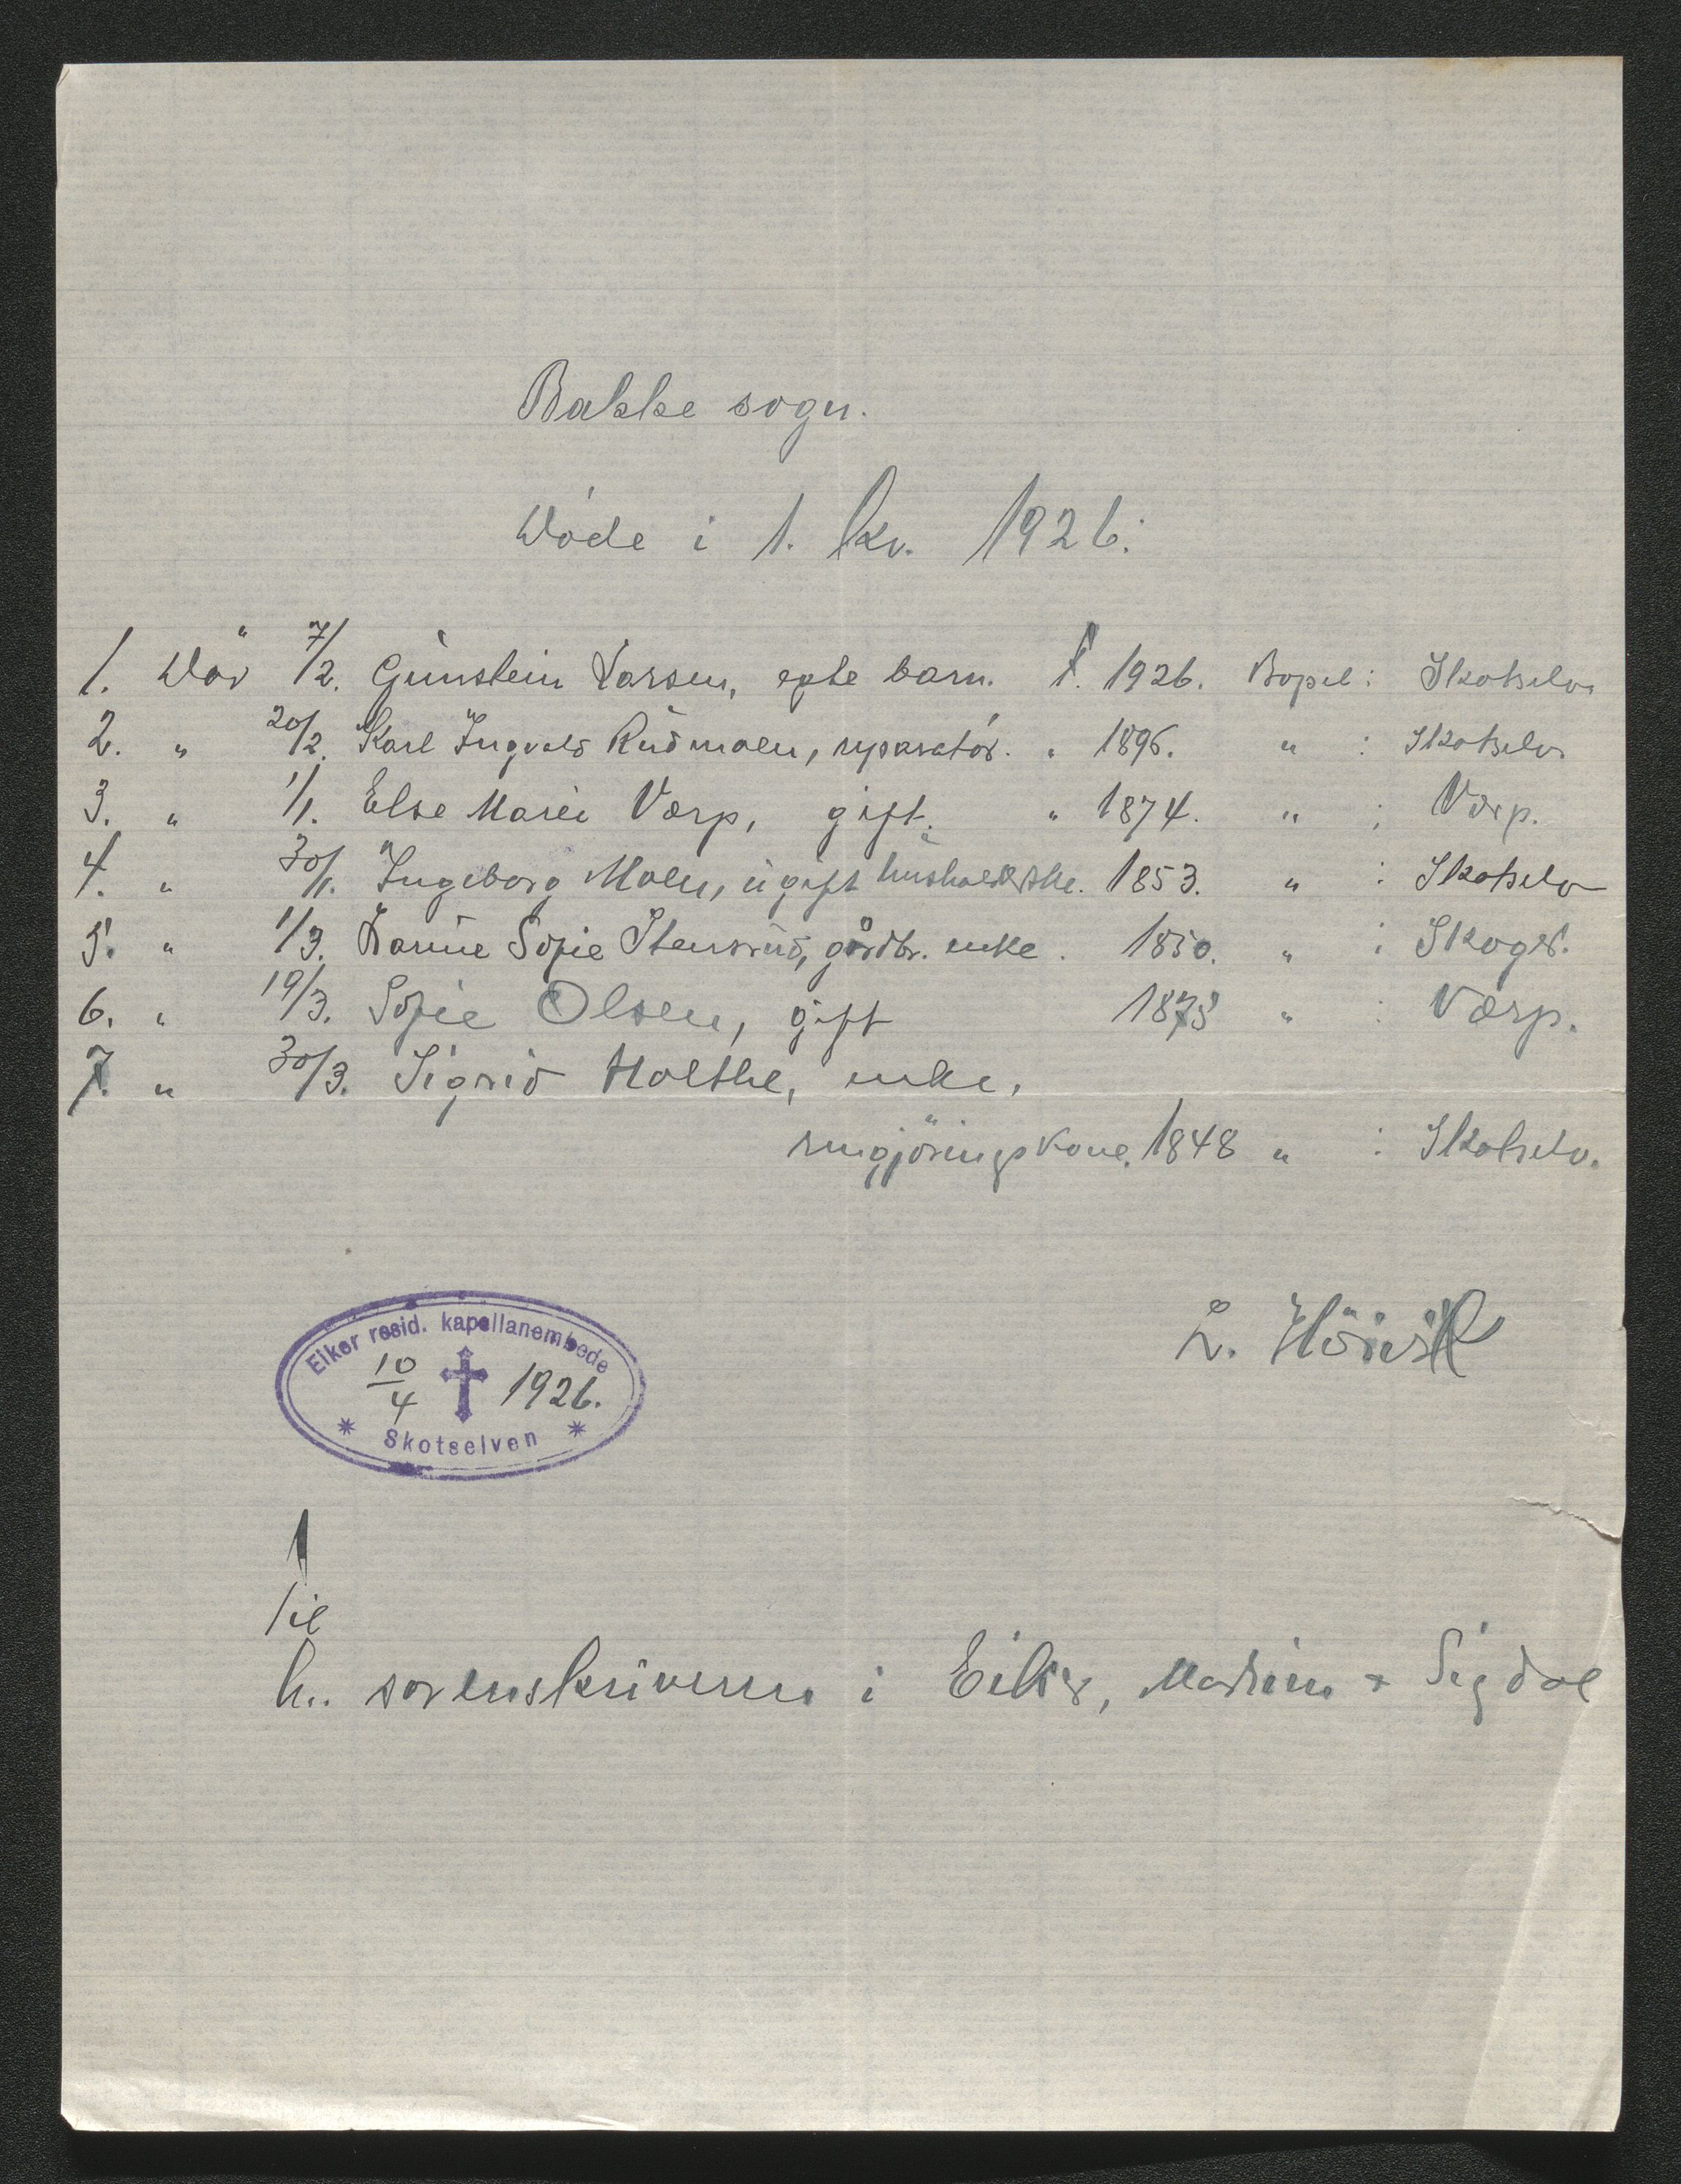 Bakke sogn.
Døde i 1. kv. 1926.
1. Død 7/2. Gunstein Larsen, egte barn. f. 1926. Bopel: Skotselv.
2. " 20/2. Karl Ingvald Rudmoen, reparatør. " 1896. " : Skotselv.
3. " 1/1. Else Marie Værp, gift. " 1874. " : Værp.
4. " 30/1. Ingeborg Moen, ugift husholderske. 1853. " : Skotselv
5. " 1/3. Karine Sofie Stensrud, gårdbr. enke. 1850. "
6. " 19/3. Sofie Olsen, gift 1873 " : Værp.
7. " 30/3. Sigrid Holthe, enke,
rengjöringskone. 1848 " : Skotselv.
L.
Eiker resid. kapellanembede
10/4 1926.
Skotselven
Til
hr. sorenskriveren i Eiker, Modum & Sigdal